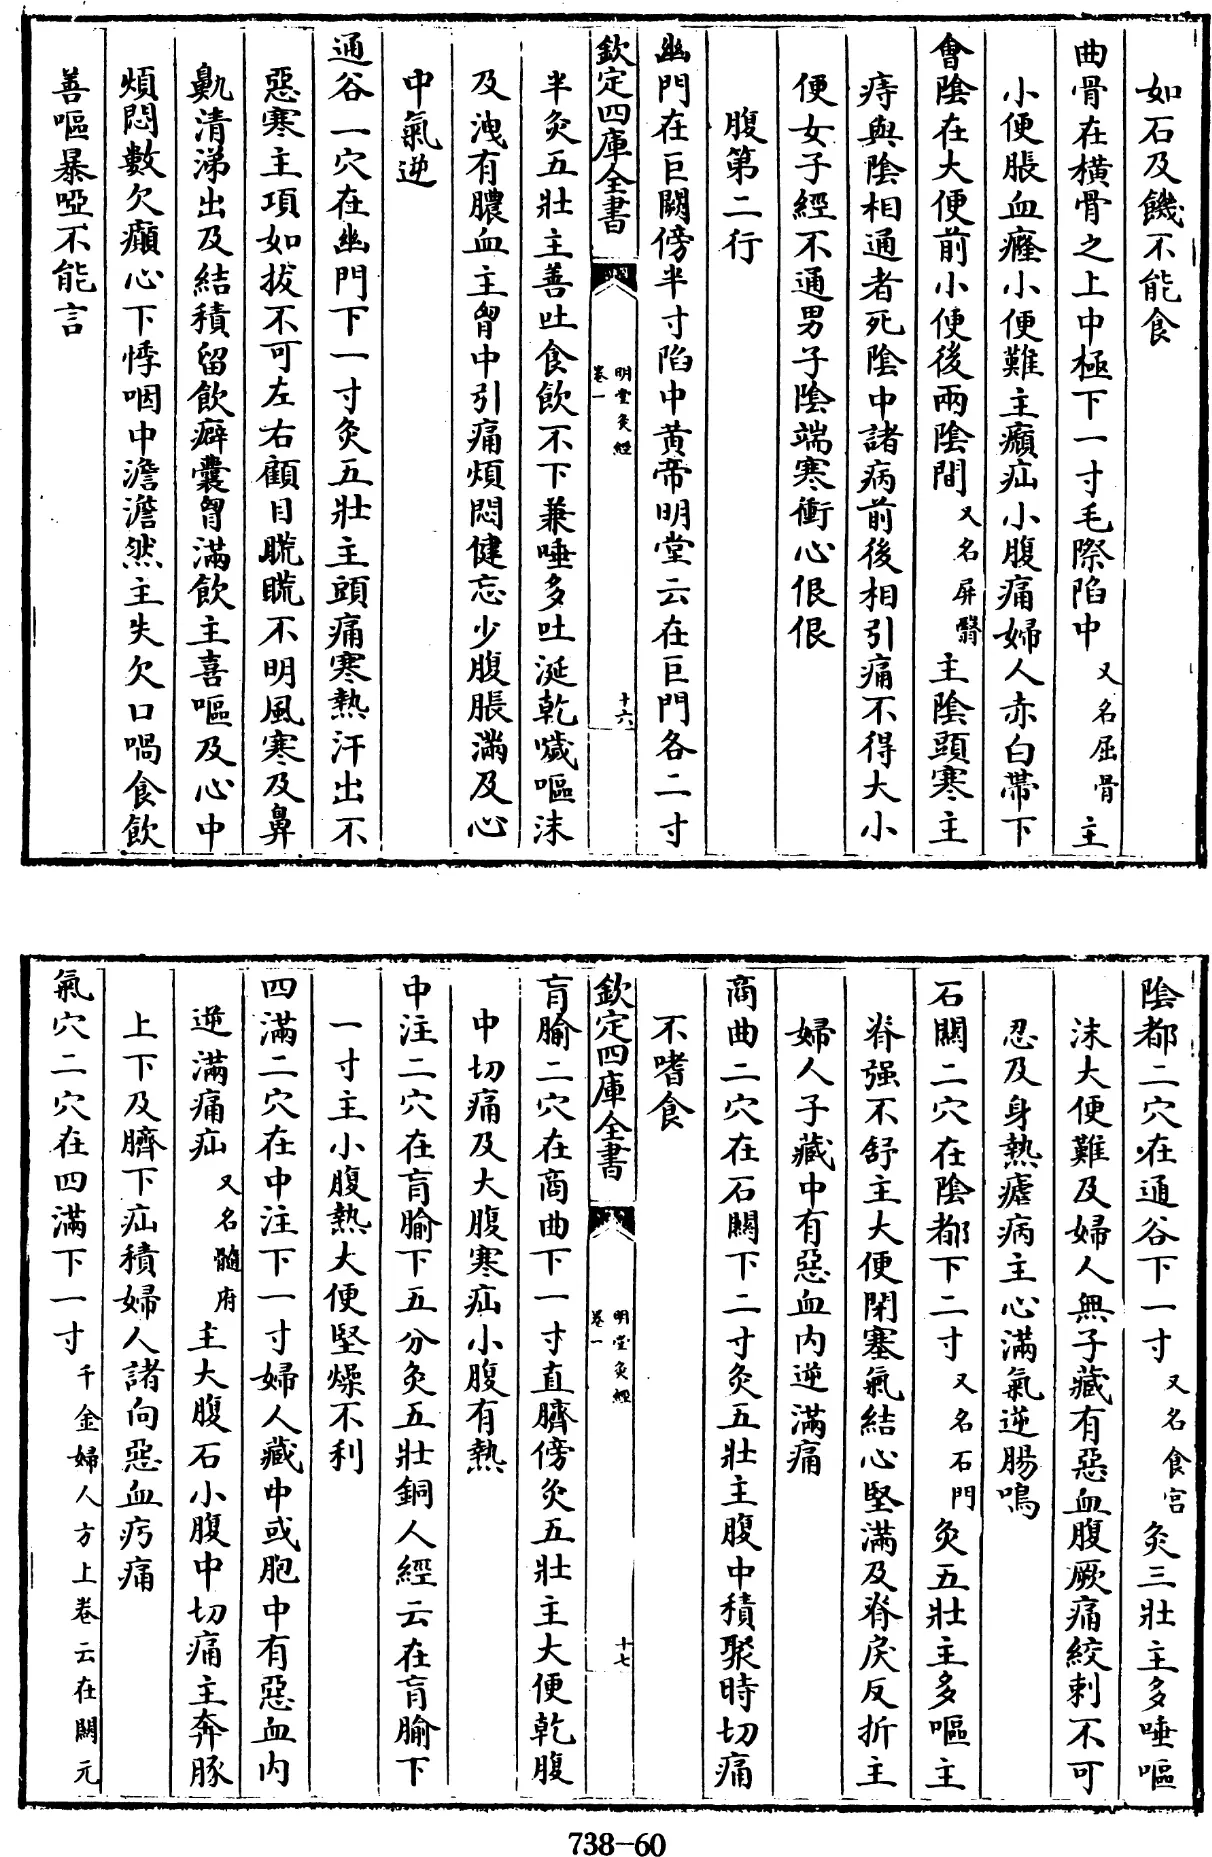 如石及饑不能食
曲骨在橫骨之上中極下一寸毛際陷中又名屈骨主
小便脹血癃小便難主癩疝小腹痛婦人赤白帶下
會陰在大便前小便後兩陰間又名屏翳主陰頭寒主
痔與陰相通者死陰中諸病前後相引痛不得大小
便女子經不通男子陰端寒衝心佷佷
腹第二行
幽門在巨闕傍半寸陷中黄帝明堂云在巨門各二寸
欽定四庫全書
明堂灸經
卷一
十六
半灸五壯主善吐食飲不下兼唾多吐涎乾噦嘔沫
及洩有膿血主胷中引痛煩悶健忘少腹脹滿及心
中氣逆
通谷一穴在幽門下一寸灸五壯主頭痛寒熱汗出不
惡寒主項如拔不可左右顧目䀮䀮不明風寒及鼻
鼽清涕出及結積留飲癖囊胷滿飲主喜嘔及心中
煩悶數欠癲心下悸咽中澹澹然主失欠口喎食飲
善嘔暴啞不能言
陰都二穴在通谷下一寸又名食宫灸三壯主多唾嘔
沫大便難及婦人無子藏有惡血腹厥痛絞刺不可
忍及身熱瘧病主心滿氣逆腸鳴
石關二穴在陰都下二寸又名石門灸五壯主多嘔主
脊强不舒主大便閉塞氣結心堅滿及脊戾反折主
婦人子藏中有惡血内逆滿痛
商曲二穴在石關下二寸灸五壯主腹中積聚時切痛
不嗜食
欽定四庫全書
明堂灸經
卷一
十七
肓腧二穴在商曲下一寸直臍傍灸五壯主大便乾腹
中切痛及大腹寒疝小腹有熱
中注二穴在肓腧下五分灸五壯銅人經云在肓腧下
一寸主小腹熱大便堅燥不利
四滿二穴在中注下一寸婦人藏中或胞中有惡血内
逆滿痛疝又名髓府主大腹石小腹中切痛主奔豚
上下及臍下疝積婦人諸向惡血㽲痛
氣穴二穴在四滿下一寸千金婦人方上卷云在關元
738-60